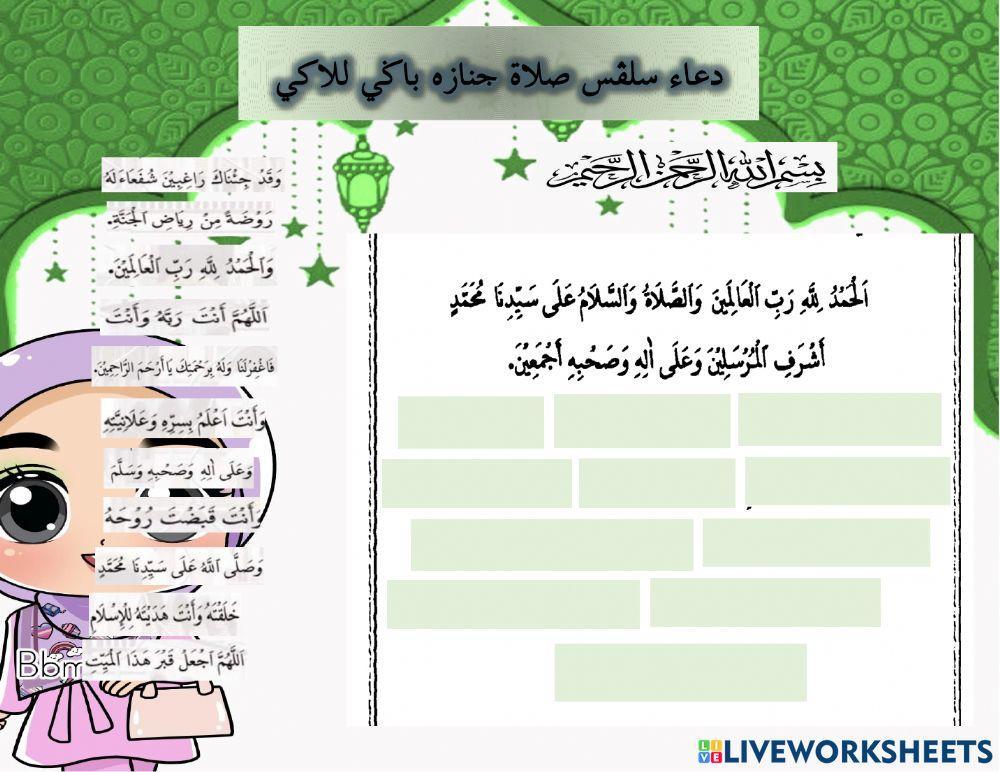 دعاء سلڤس صلاة جنازه باݢي للاكي
بِسْمِ اللهِ الرَّحْمٰنِ الرَّحِيْمِ
اَلْحَمْدُ لِلَّهِ رَبِّ الْعَالَمِيْنَ وَالصَّلَاةُ وَالسَّلَامُ عَلَى سَيِّدِنَا مُحَمَّدٍ
أَشْرَفِ الْمُرْسَلِيْنَ وَعَلَى اٰلِهِ وَصَحْبِهِ أَجْمَعِيْنَ.
وَقَدْ جِئْنَاكَ رَاغِبِيْنَ شُفَعَاءَ لَهُ
رَوْضَةً مِنْ رِيَاضِ الْجَنَّةِ.
وَالْحَمْدُ لِلَّهِ رَبِّ الْعَالَمِيْنَ.
اَللَّهُمَّ أَنْتَ رَبُّهُ وَأَنْتَ
فَاغْفِرْلَنَا وَلَهُ بِرَحْمَتِكَ يَاأَرْحَمَ الرَّاحِمِيْنَ.
وَأَنْتَ اَعْلَمُ بِسِرِّهِ وَعَلَانِيَّتِهِ
وَعَلَى اٰلِهِ وَصَحْبِهِ وَسَلَّمَ
وَأَنْتَ قَبَضْتَ رُوْحَهُ
وَصَلَّى اللَّهُ عَلَى سَيِّدِنَا مُحَمَّدٍ
خَلَقْتَهُ وَأَنْتَ هَدَيْتَهُ لِلْإِسْلَامِ
اَللَّهُمَّ اجْعَلْ قَبْرَ هَذَا الْمَيِّتِ
Bbm
LIVEWORKSHEETS